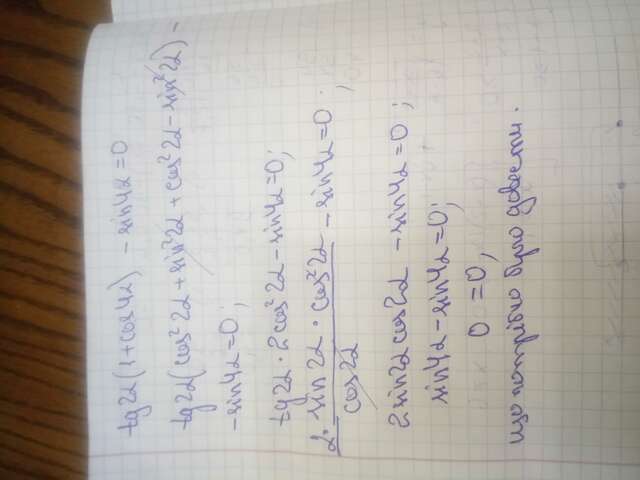 tg2α(1+cos4α) - sin4α=0
tg2α(cos²2α + sin²2α + cos²2α - sin²2α) -
- sin4α=0;
tg2α · 2cos²2α - sin4α=0;
2 · sin2α · cos²2α / cos2α - sin4α=0;
2sin2αcos2α - sin4α=0;
sin4α - sin4α=0;
0 = 0,
що потрібно було довести.